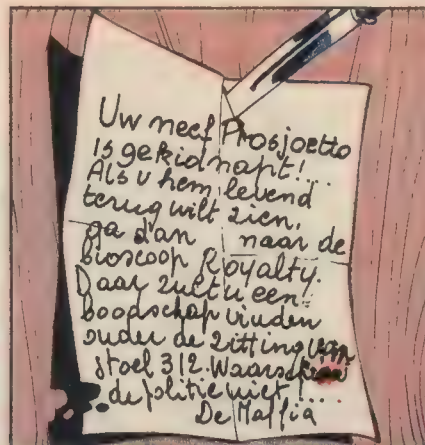 Uw neef Prosjoetto
is gekidnapt!...
Als u hem levend
terug wilt zien,
ga dan naar de
bioscoop Royalty.
Daar zult u een
boodschap vinden
onder de zitting van
stoel 312. Waarschuw
de politie niet!...
De Maffia